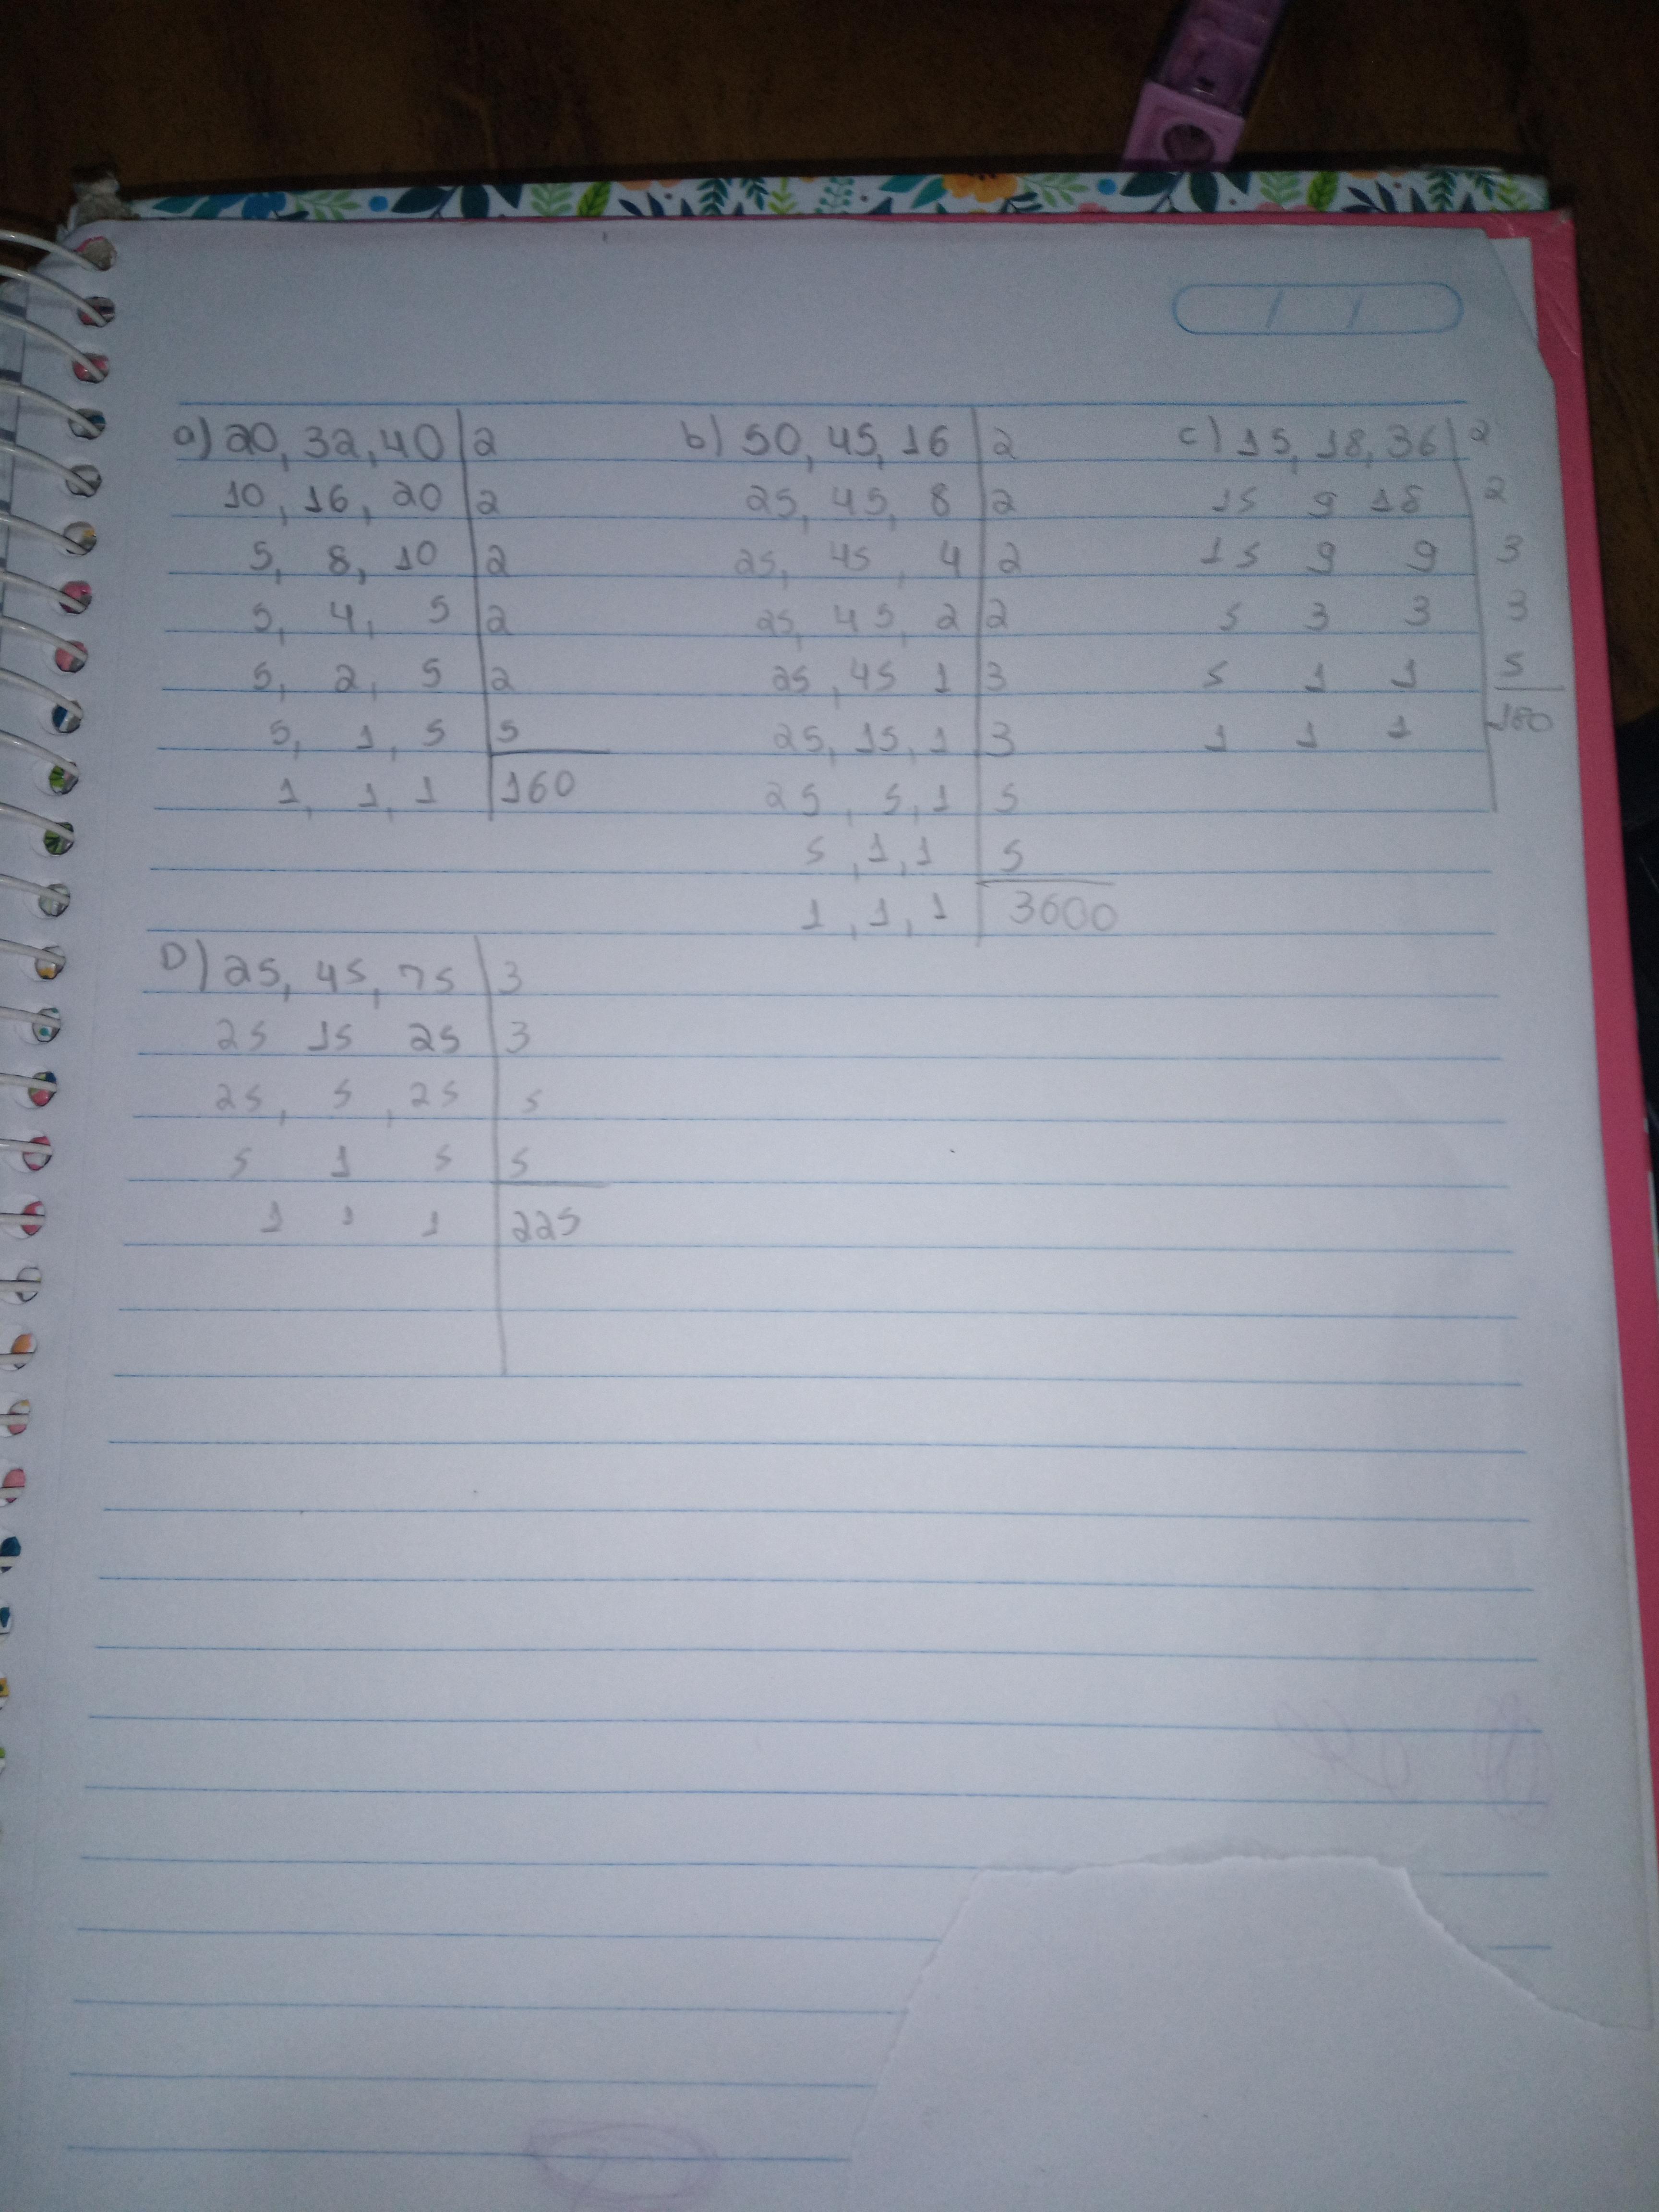 a) 20, 32, 40 | 2
10, 16, 20 | 2
5, 8, 10 | 2
5, 4, 5 | 2
5, 2, 5 | 2
5, 1, 5 | 5
1, 1, 1 | 160
b) 50, 45, 16 | 2
25, 45, 8 | 2
25, 45, 4 | 2
25, 45, 2 | 2
25, 45 1 | 3
25, 15, 1 | 3
25, 5, 1 | 5
5, 1, 1 | 5
1, 1, 1 | 3600
c) 15, 18, 36 | 2
15 9 18 | 2
15 9 9 | 3
5 3 3 | 3
5 1 1 | 5
1 1 1 | 180
D) 25, 45, 75 | 3
25 15 25 | 3
25, 5, 25 | 5
5 1 5 | 5
1 1 1 | 225